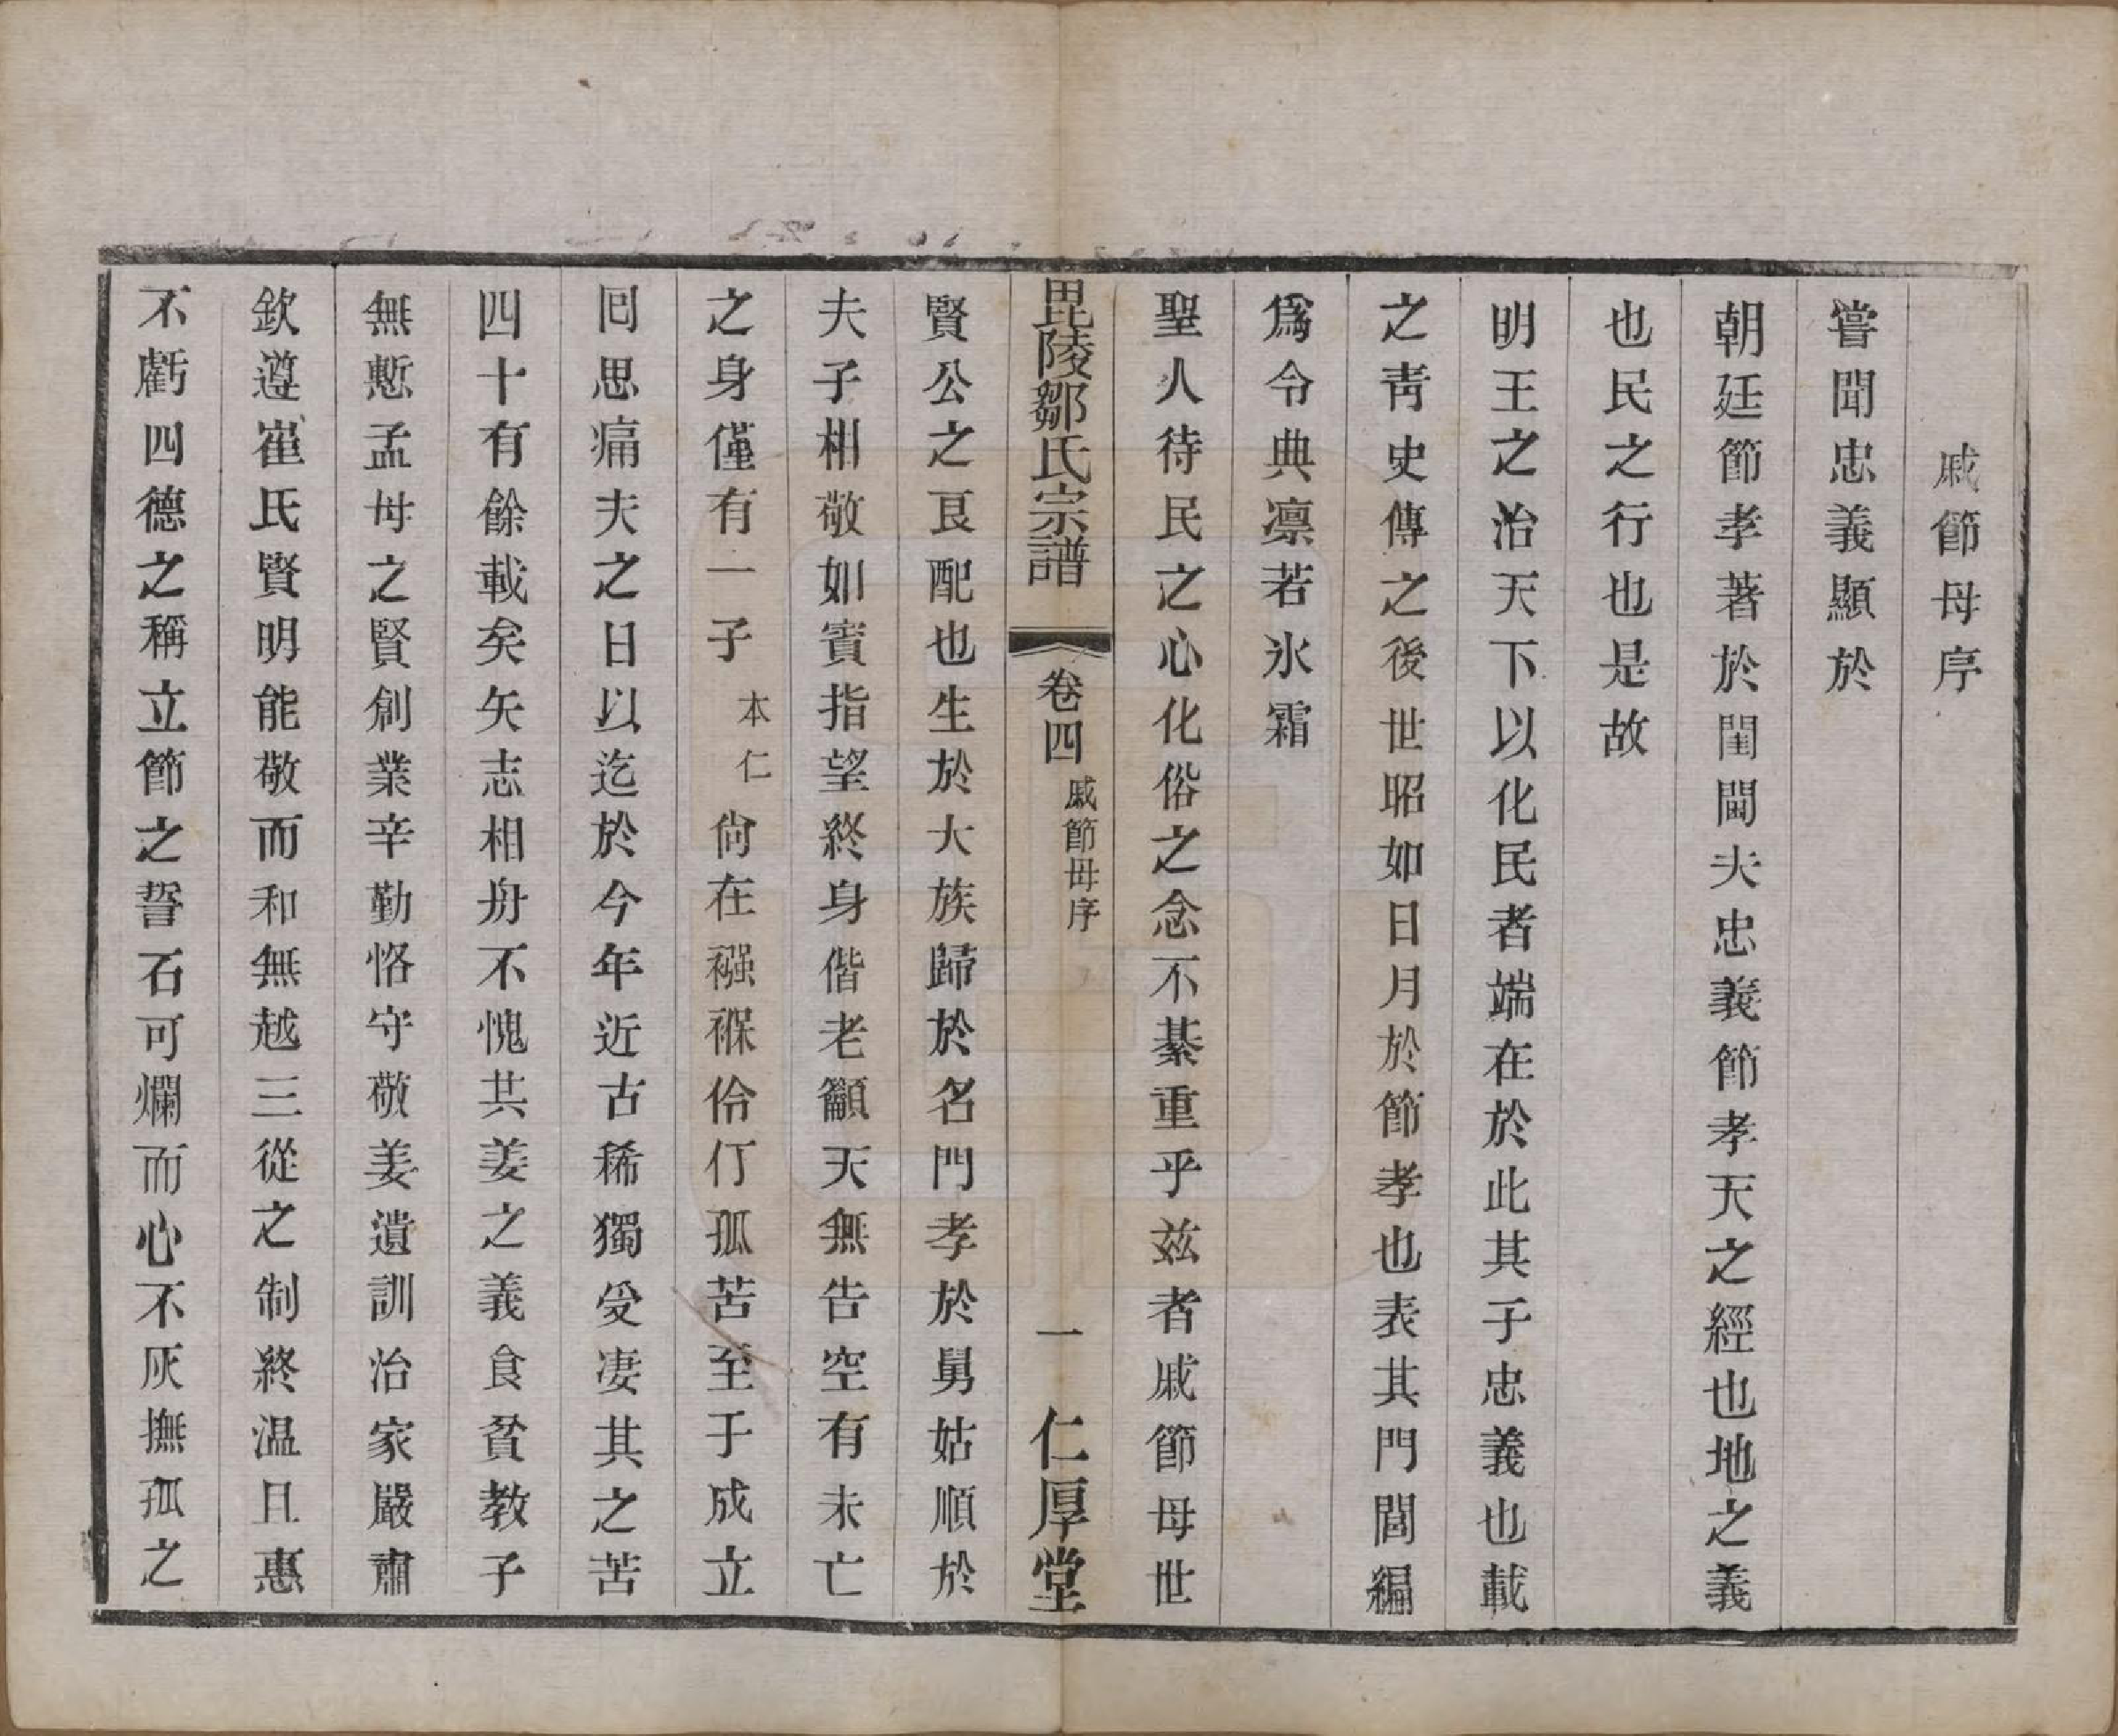 戚節母序
嘗聞忠義顯於
朝廷節孝著於閨閫夫忠義節孝天之經也地之義
也民之行也是故
明王之治天下以化民者端在於此其子忠義也載
之靑史傳之後世昭如日月於節孝也表其門閭編
爲令典凛若氷霜
聖人待民之心化俗之念不綦重乎兹者戚節母世
毘陵鄒氏宗譜 卷四 戚節母序 一 仁厚堂
賢公之良配也生於大族歸於名門孝於舅姑順於
夫子相敬如賓指望終身偕老籲天無告空有未亡
之身僅有一子本仁尙在襁褓伶仃孤苦至于成立
囘思痛夫之日以迄於今年近古稀獨受凄其之苦
四十有餘載矣矢志柏舟不愧共姜之義食貧教子
無慙孟母之賢創業辛勤恪守敬姜遺訓治家嚴肅
欽遵崔氏賢明能敬而和無越三從之制終温且惠
不虧四德之稱立節之誓石可爛而心不灰撫孤之